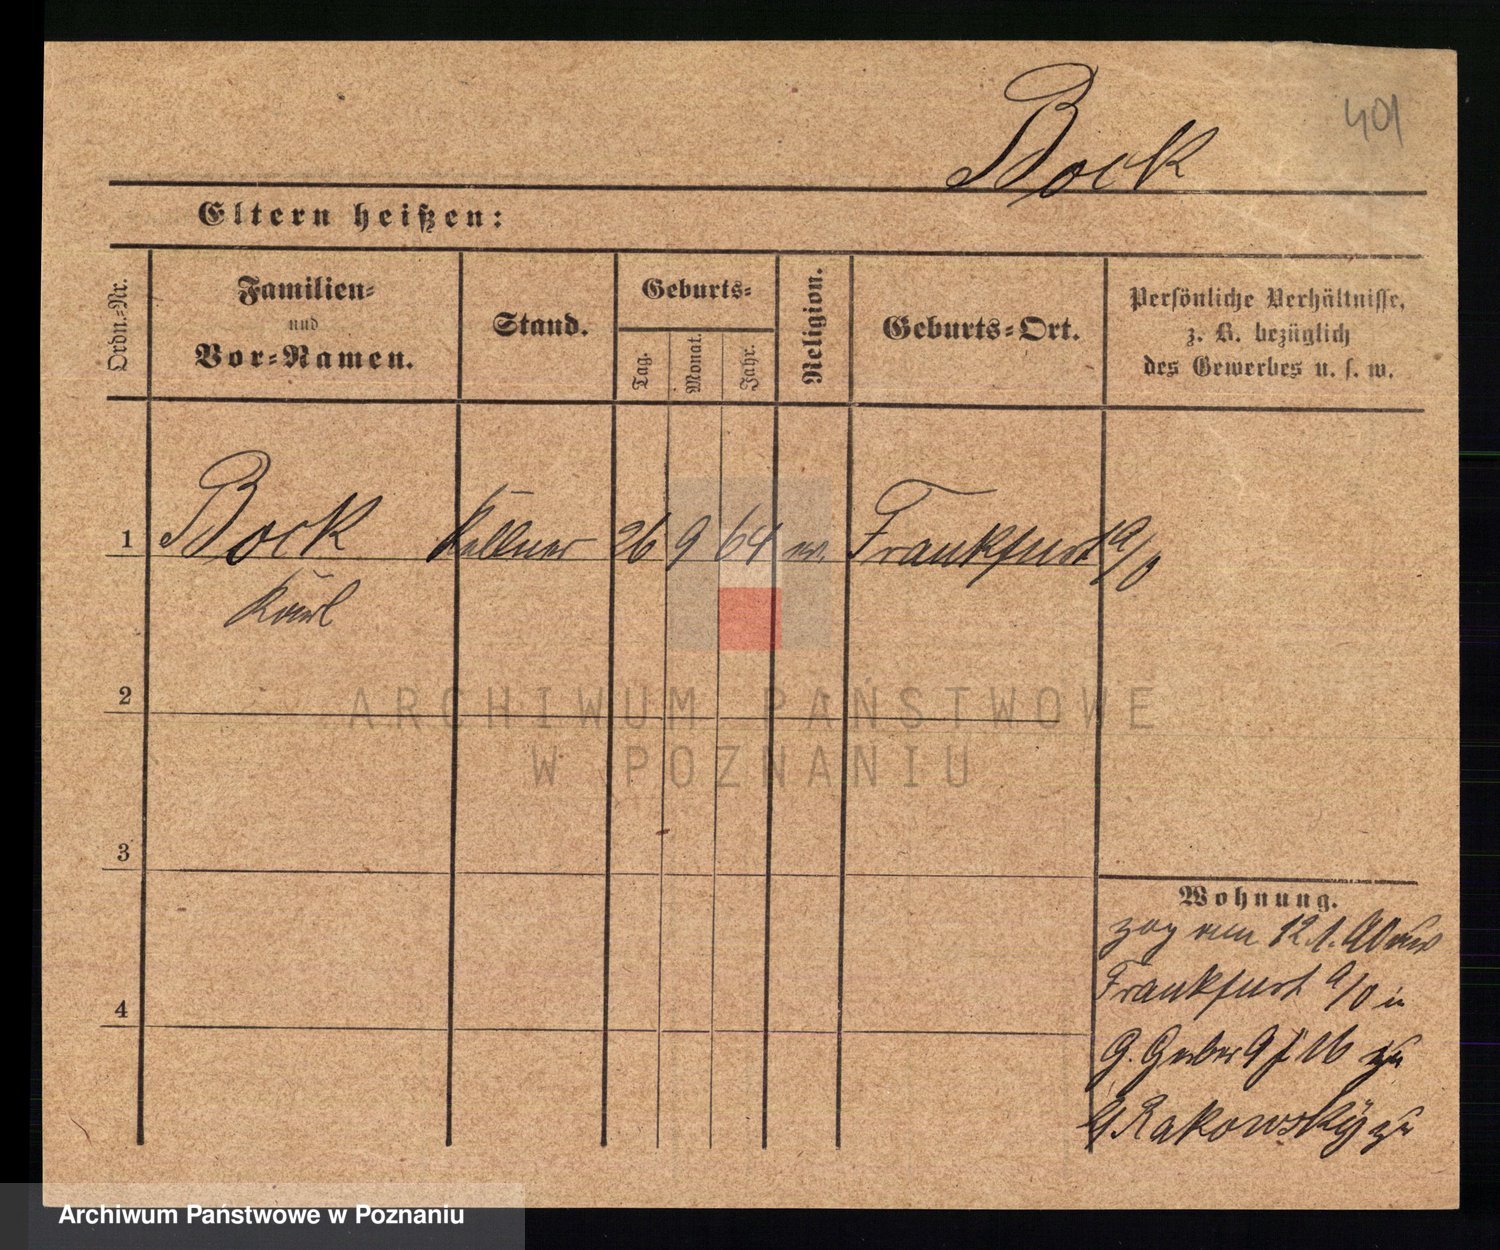 401
Bock
Eltern heißen:
Ordn.-Nr.
Familien-
und
Vor-Namen.
Stand.
Geburts-
Tag.
Monat.
Jahr.
Religion.
Geburts-Ort.
Persönliche Verhältnisse,
z. B. bezüglich
des Gewerbes u. s. w.
1 Bock Kellner 26 9 64 ev. Frankfurt a/O
Karl
2
ARCHIWUM PAŃSTWOWE
W POZNANIU
3
Wohnung.
zog am 12.1. von
Frankfurt a/O in
4
G. Gerber 9 zu
Rakowsky zu
Archiwum Państwowe w Poznaniu